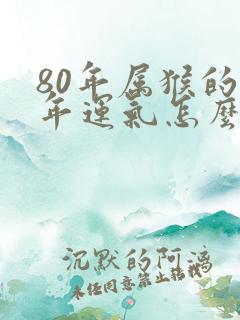 80年属猴的
年运气怎麽
沉默的阿满
未经同意禁止转载